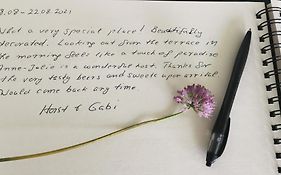 8.08 - 22.08.2021
What a very special place! Beautifully
decorated. Looking out from the terrace in
the morning feels like a touch of paradise
Anne-Julie is a wonderful host. Thanks for
the very tasty beers and sweets upon arrival.
Would come back any time.
Horst & Gabi